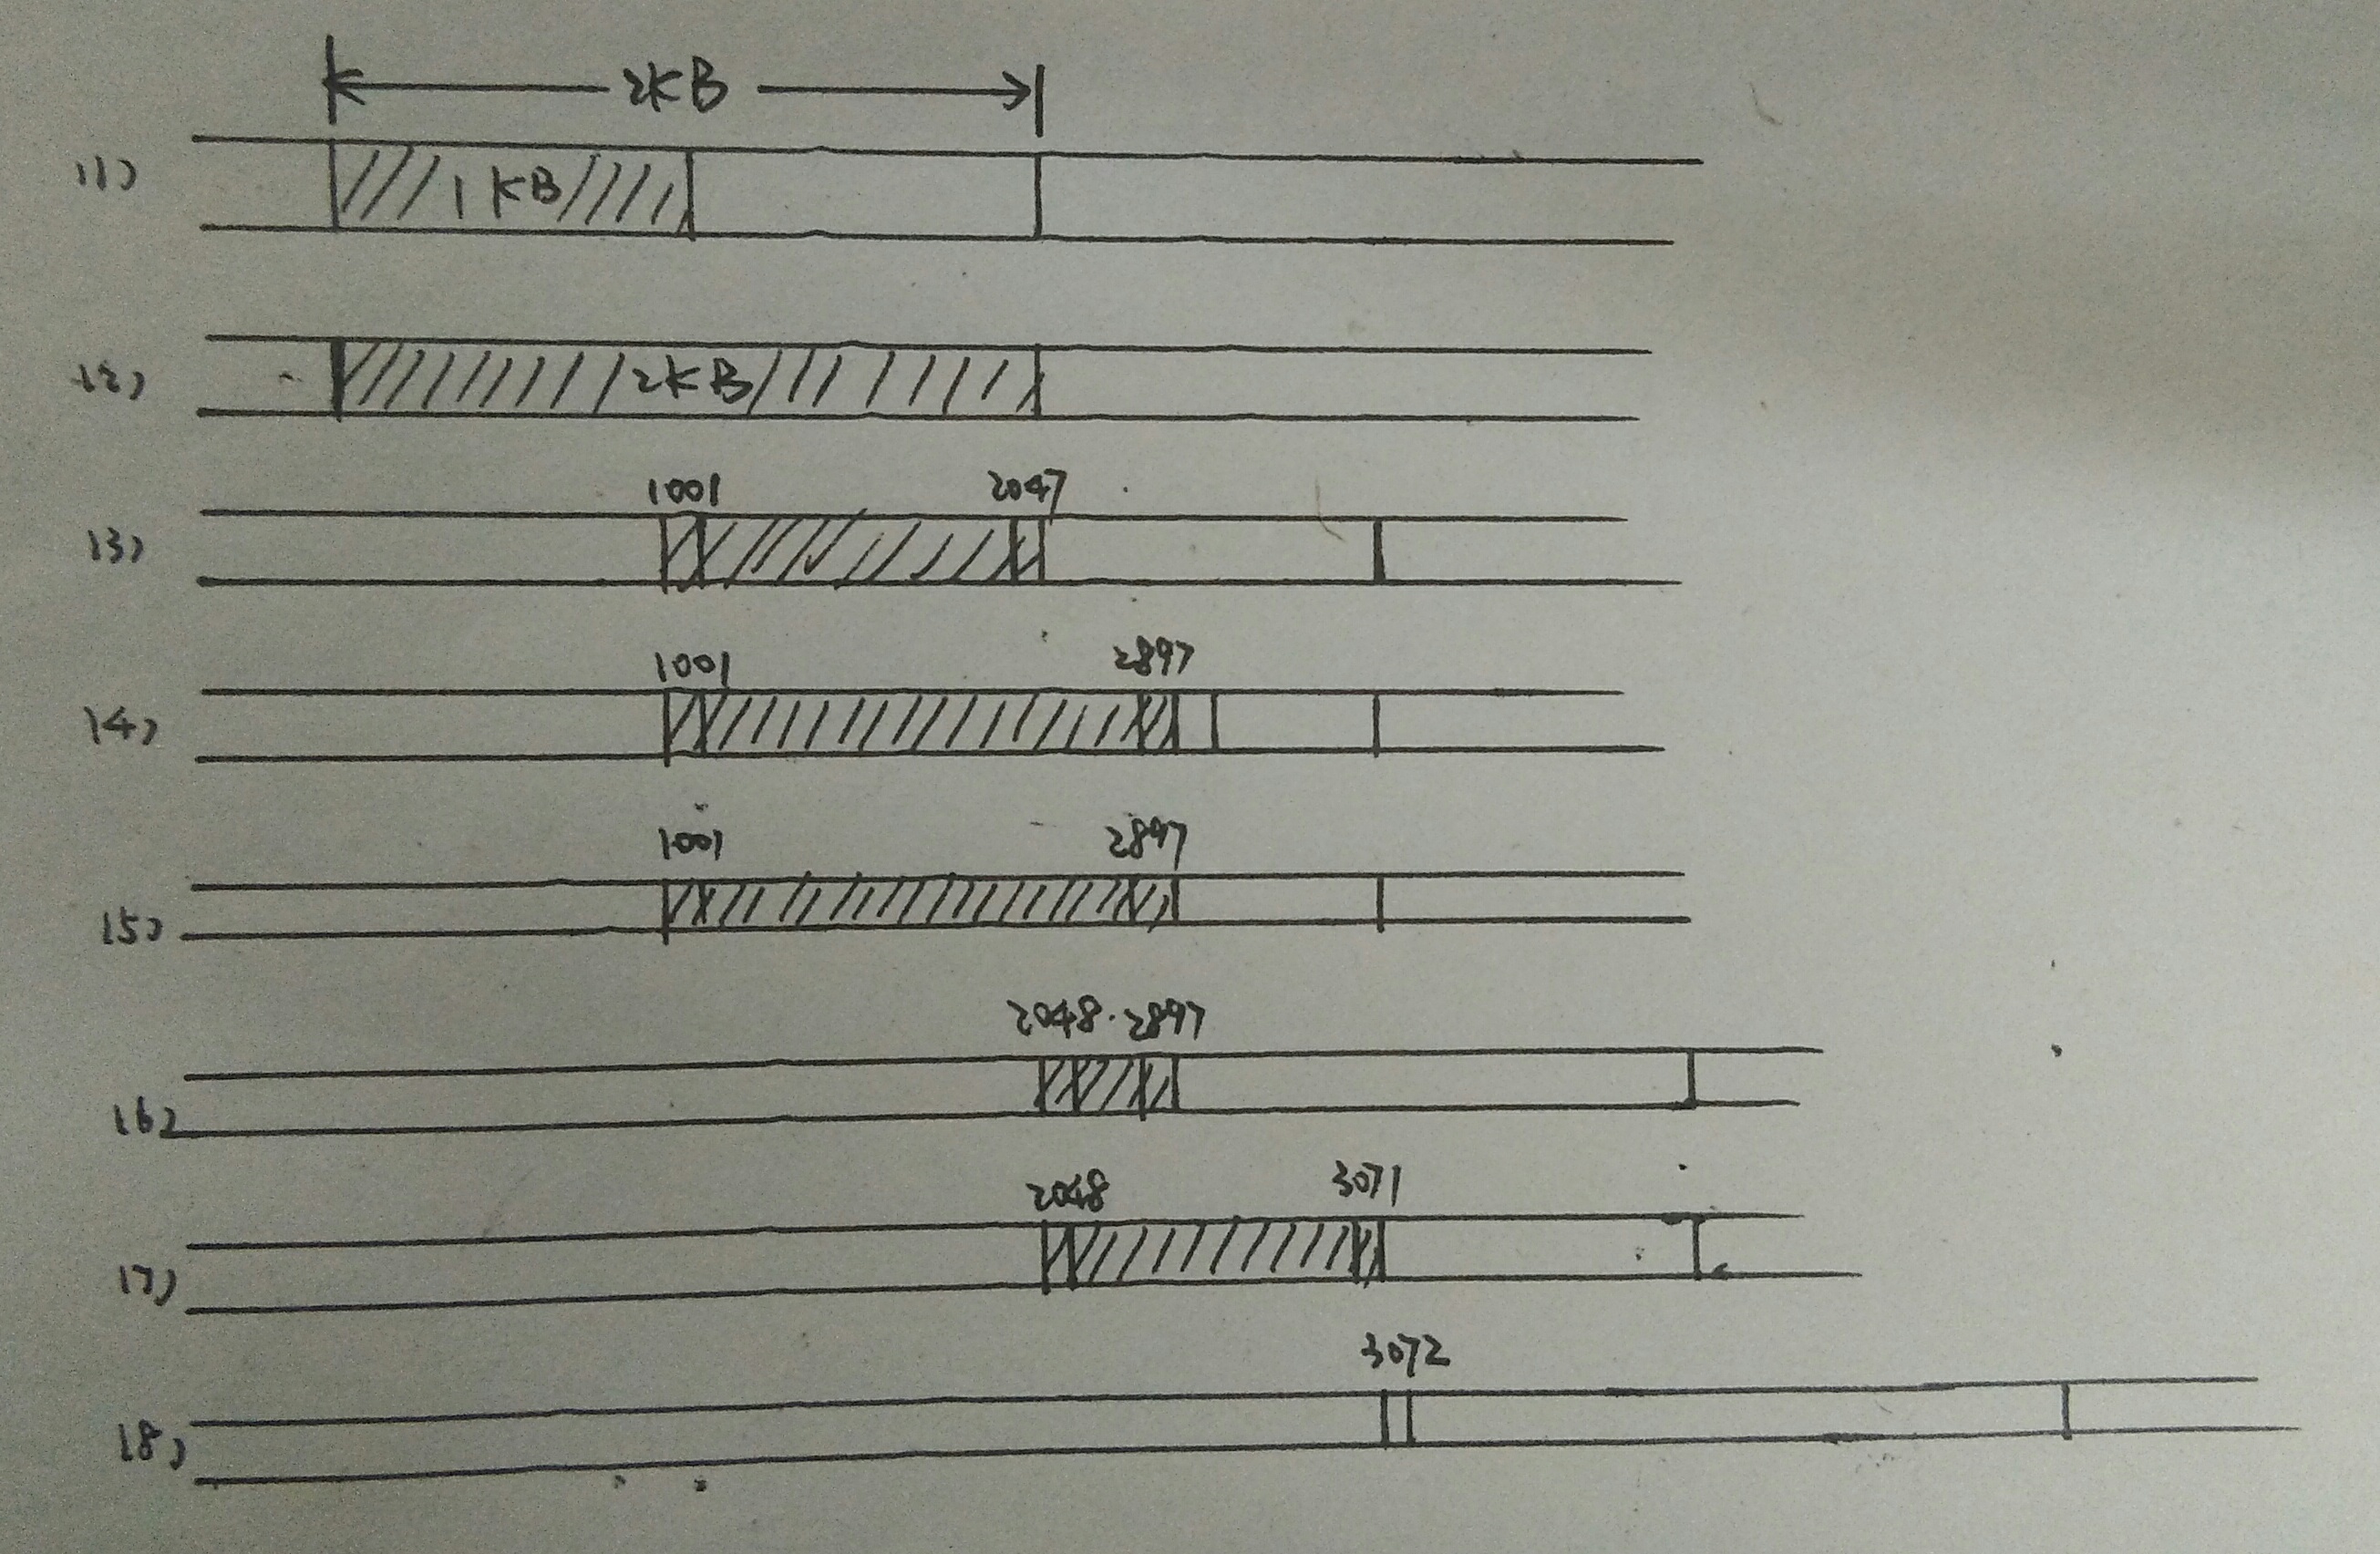 2KB
(1) 1KB
(2) 2KB
1001 2047
(3)
1001 2897
(4)
1001 2897
(5)
2048 2897
(6)
2048 3071
(7)
3072
(8)